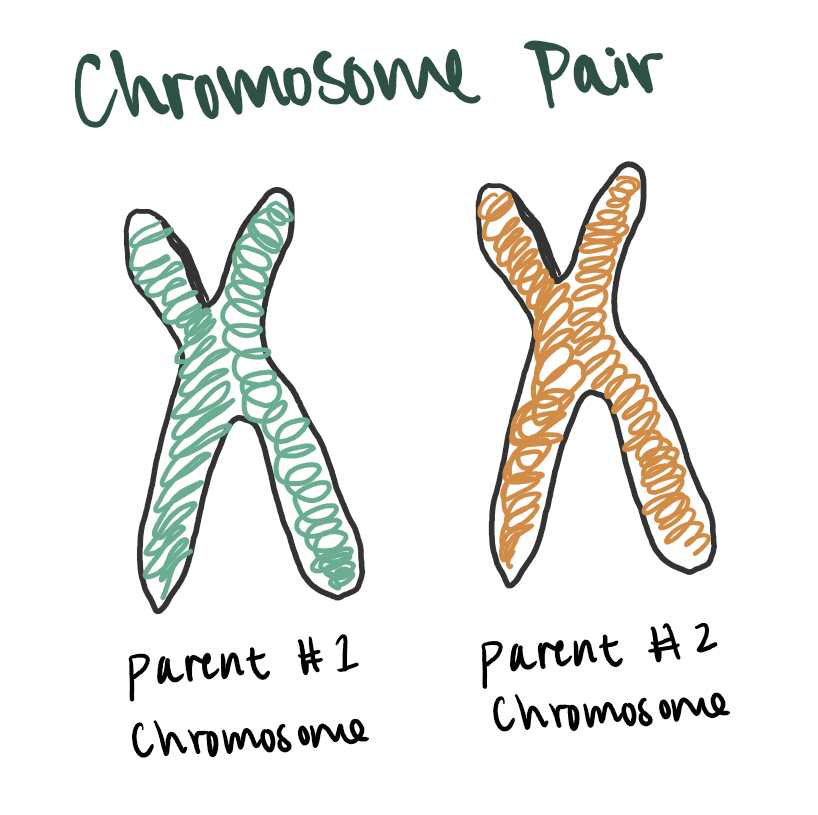 Chromosome Pair
Parent #1
Chromosome
Parent #2
Chromosome